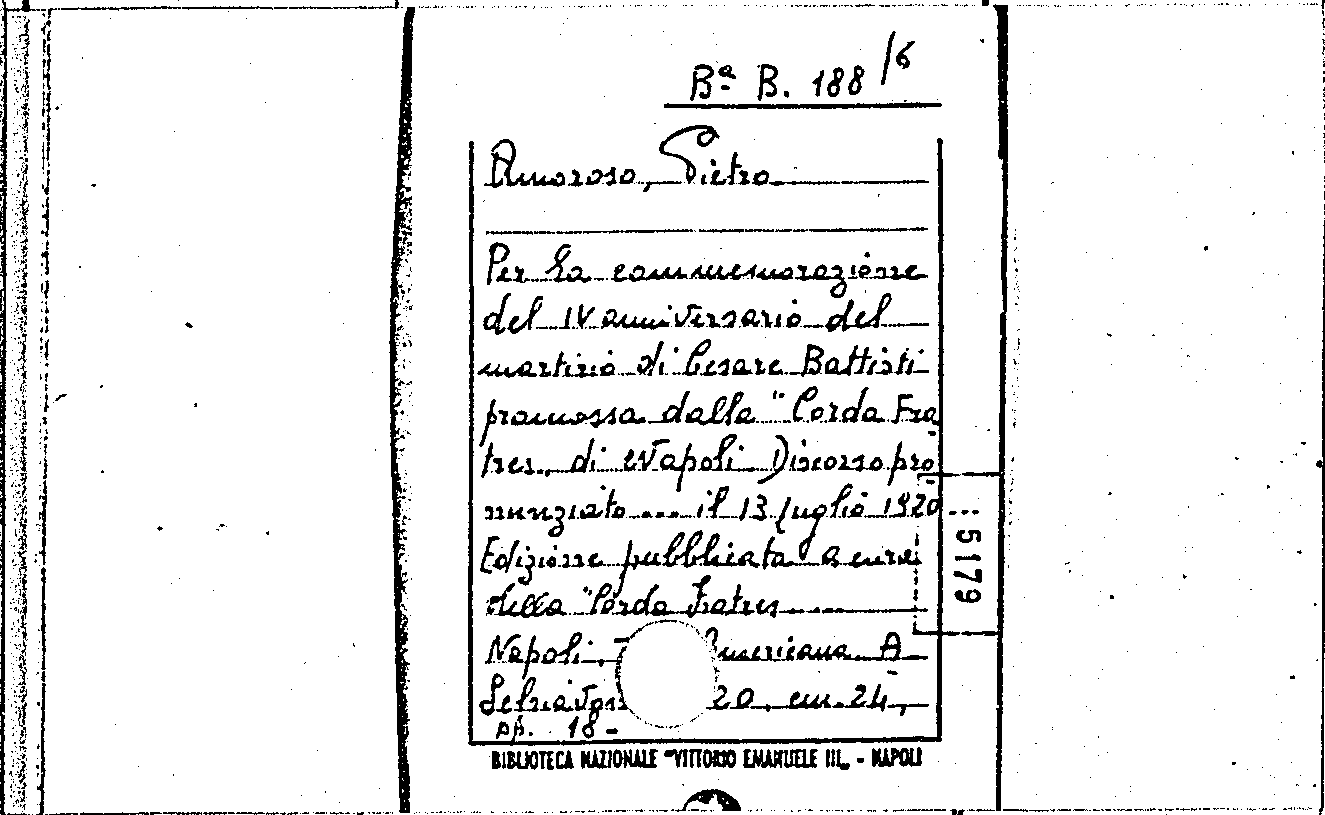 Bª B. 188/6
Amoroso, Pietro
Per la commemorazione
del IV anniversario del
martirio di Cesare Battisti
promossa dalla "Corda Fra
tres„ di Napoli. Discorso pro
nunziato ... il 13 luglio 1920
Edizione pubblicata a cura
della "Corda Fratres
Napoli, Americana A
20. cm. 24,
pp. 18 -
5179
BIBLIOTECA NAZIONALE "VITTORIO EMANUELE III„ - NAPOLI